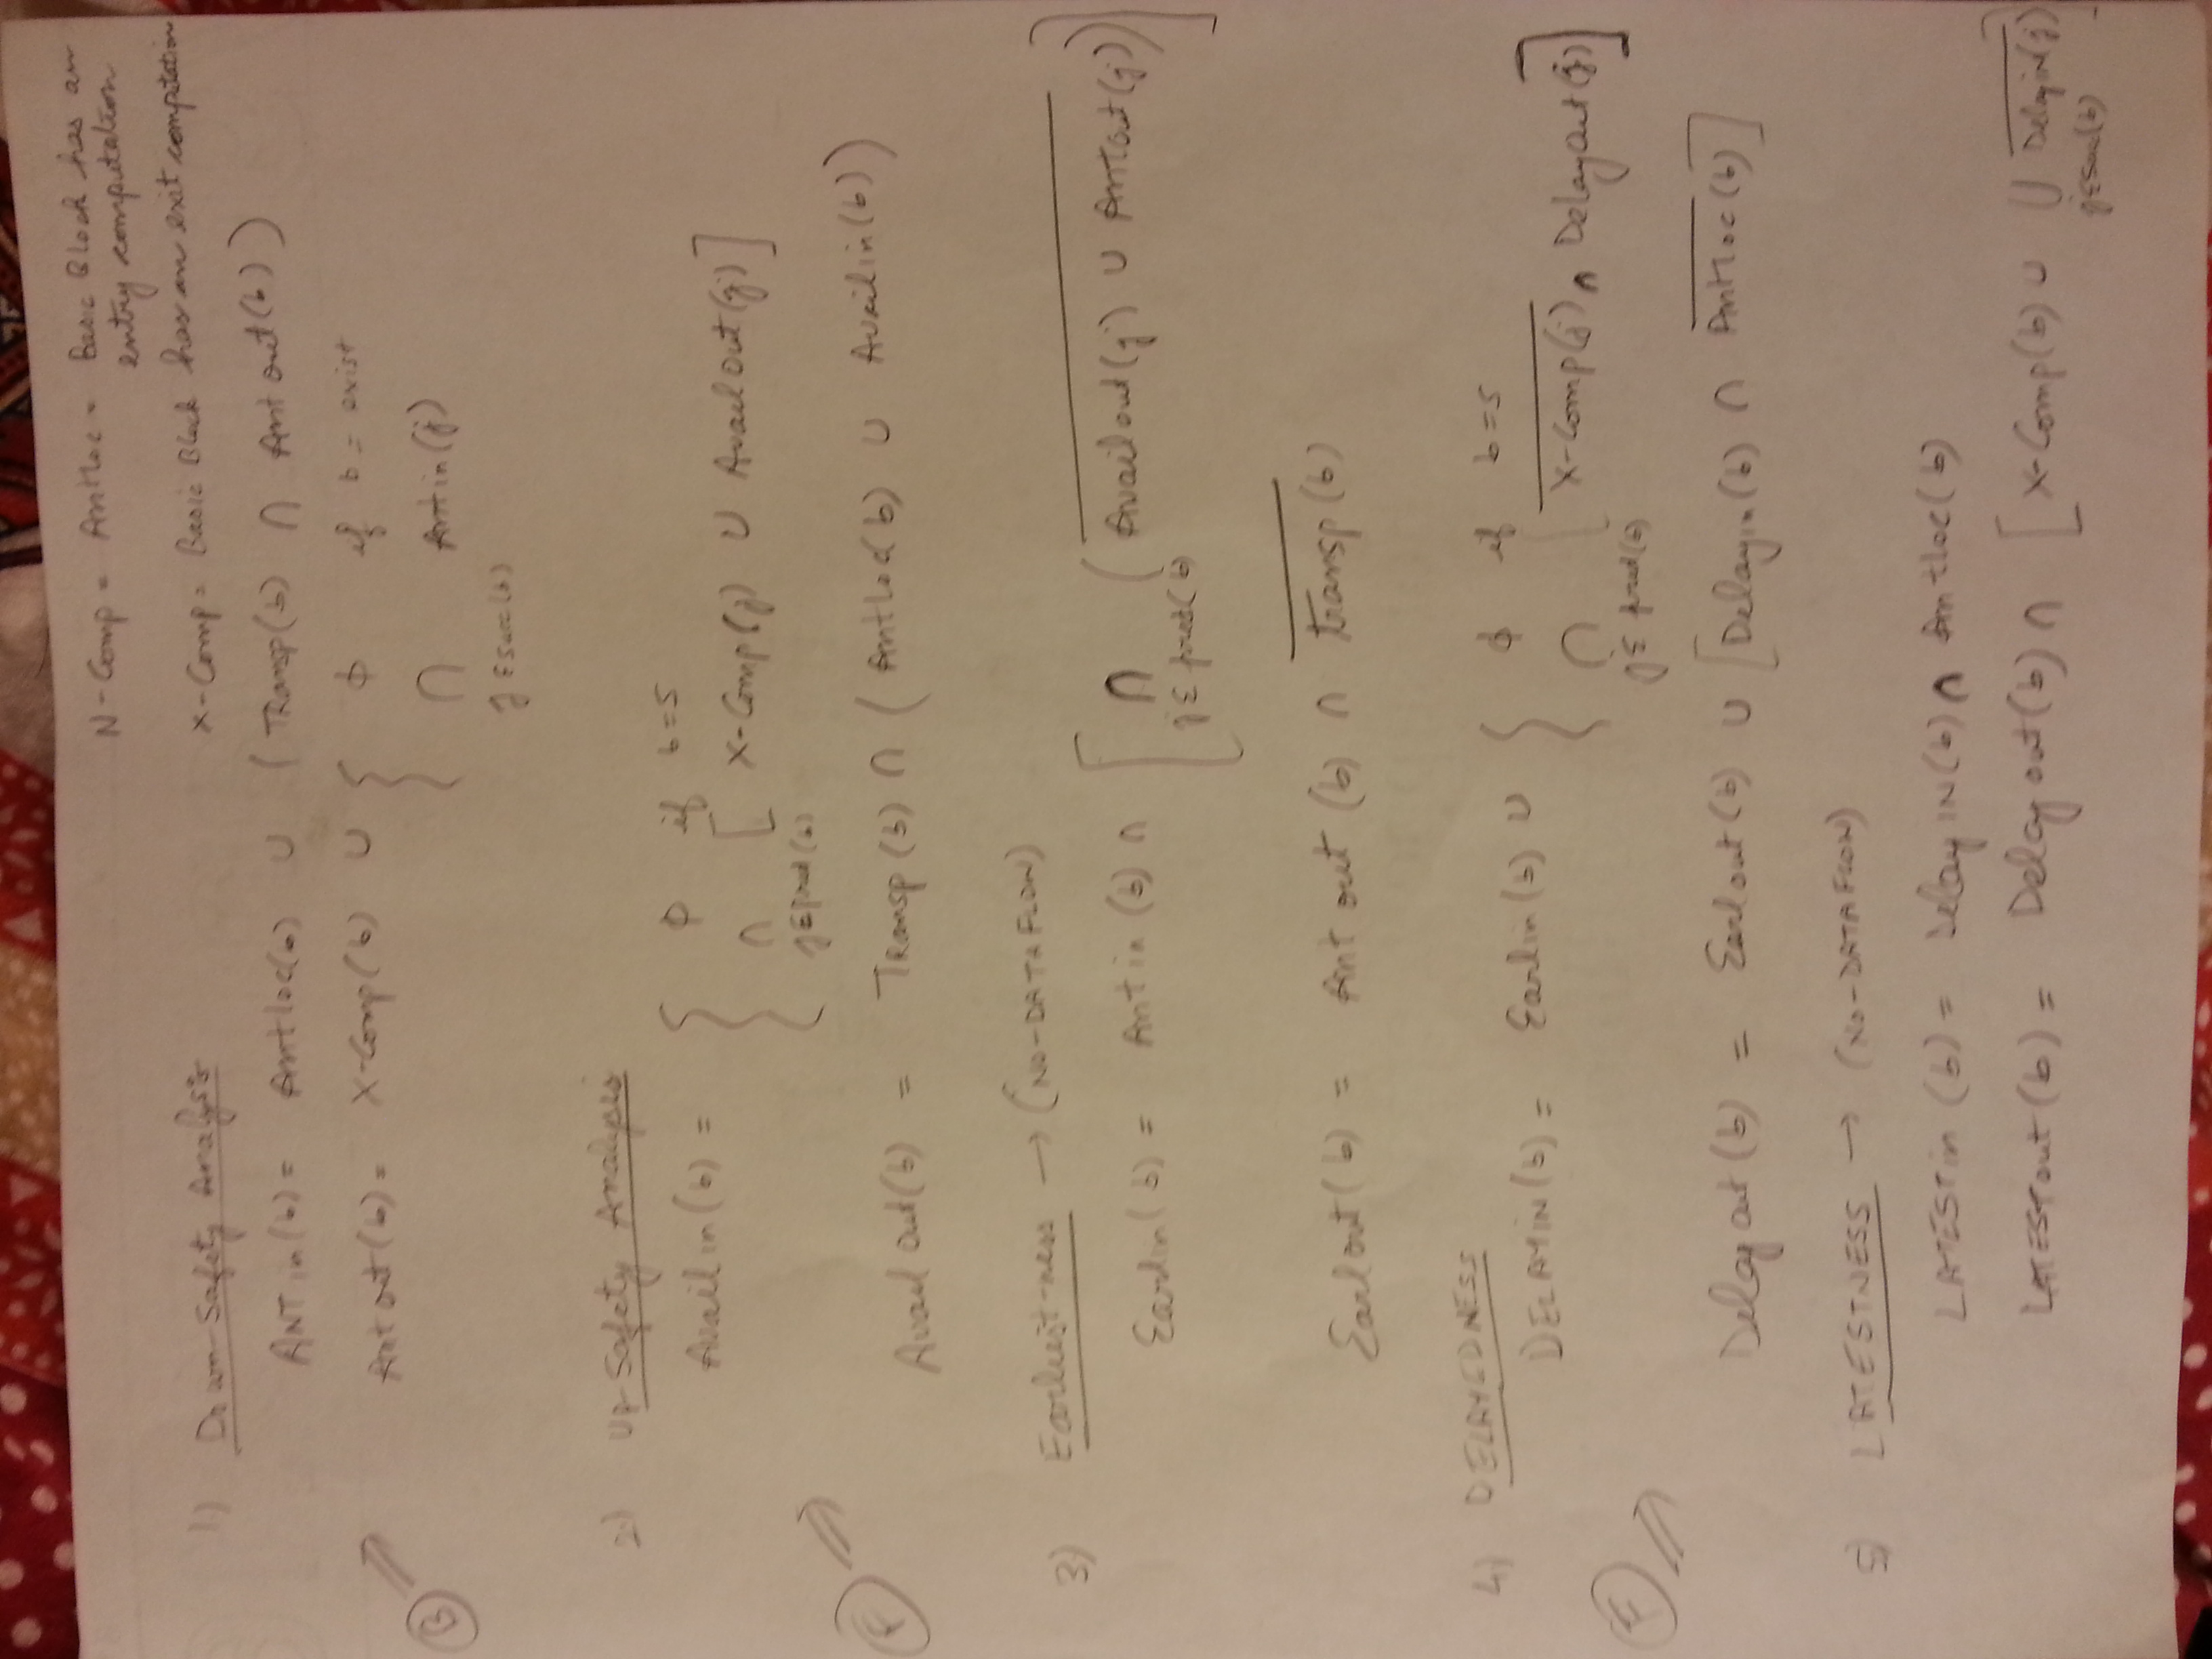 N-Comp = Antloc = Basic Block has an
entry computation
X-Comp = Basic Block has an exit computation
1) Down-Safety Analysis
ANTin(b) = Antloc(b) ∪ (Transp(b) ∩ Antout(b))
Antout(b) = X-Comp(b) ∪ { ϕ if b = exist
∩ Antin(j)
j ε Succ(b)
B
2) Up-Safety Analysis
Availin(b) = { ϕ if b=S
∩ [ X-Comp(j) ∪ AvailOut(j) ]
j ε pred(b)
F
AvailOut(b) = Transp(b) ∩ (Antloc(b) ∪ Availin(b))
3) Earliest-ness → (NO-DATA FLOW)
Earlin(b) = Antin(b) ∩ [ ∩ ( \overline{Availout(j) ∪ Antout(j)} ) ]
j ε pred(b)
Earlout(b) = Antout(b) ∩ \overline{transp(b)}
4) DELAYEDNESS
DELAYIN(b) = Earlin(b) ∪ { ϕ if b=S
∩ [ \overline{X-Comp(j)} ∩ Delayout(j) ]
j ε pred(b)
F
Delayout(b) = Earlout(b) ∪ [Delayin(b) ∩ \overline{Antloc(b)}]
5) LATESTNESS → (NO-DATA FLOW)
LATESTin(b) = DelayIN(b) ∩ Antloc(b)
LATESTout(b) = Delayout(b) ∩ [ X-Comp(b) ∪ ∪ \overline{DelayIN(j)} ]
j ε Succ(b)